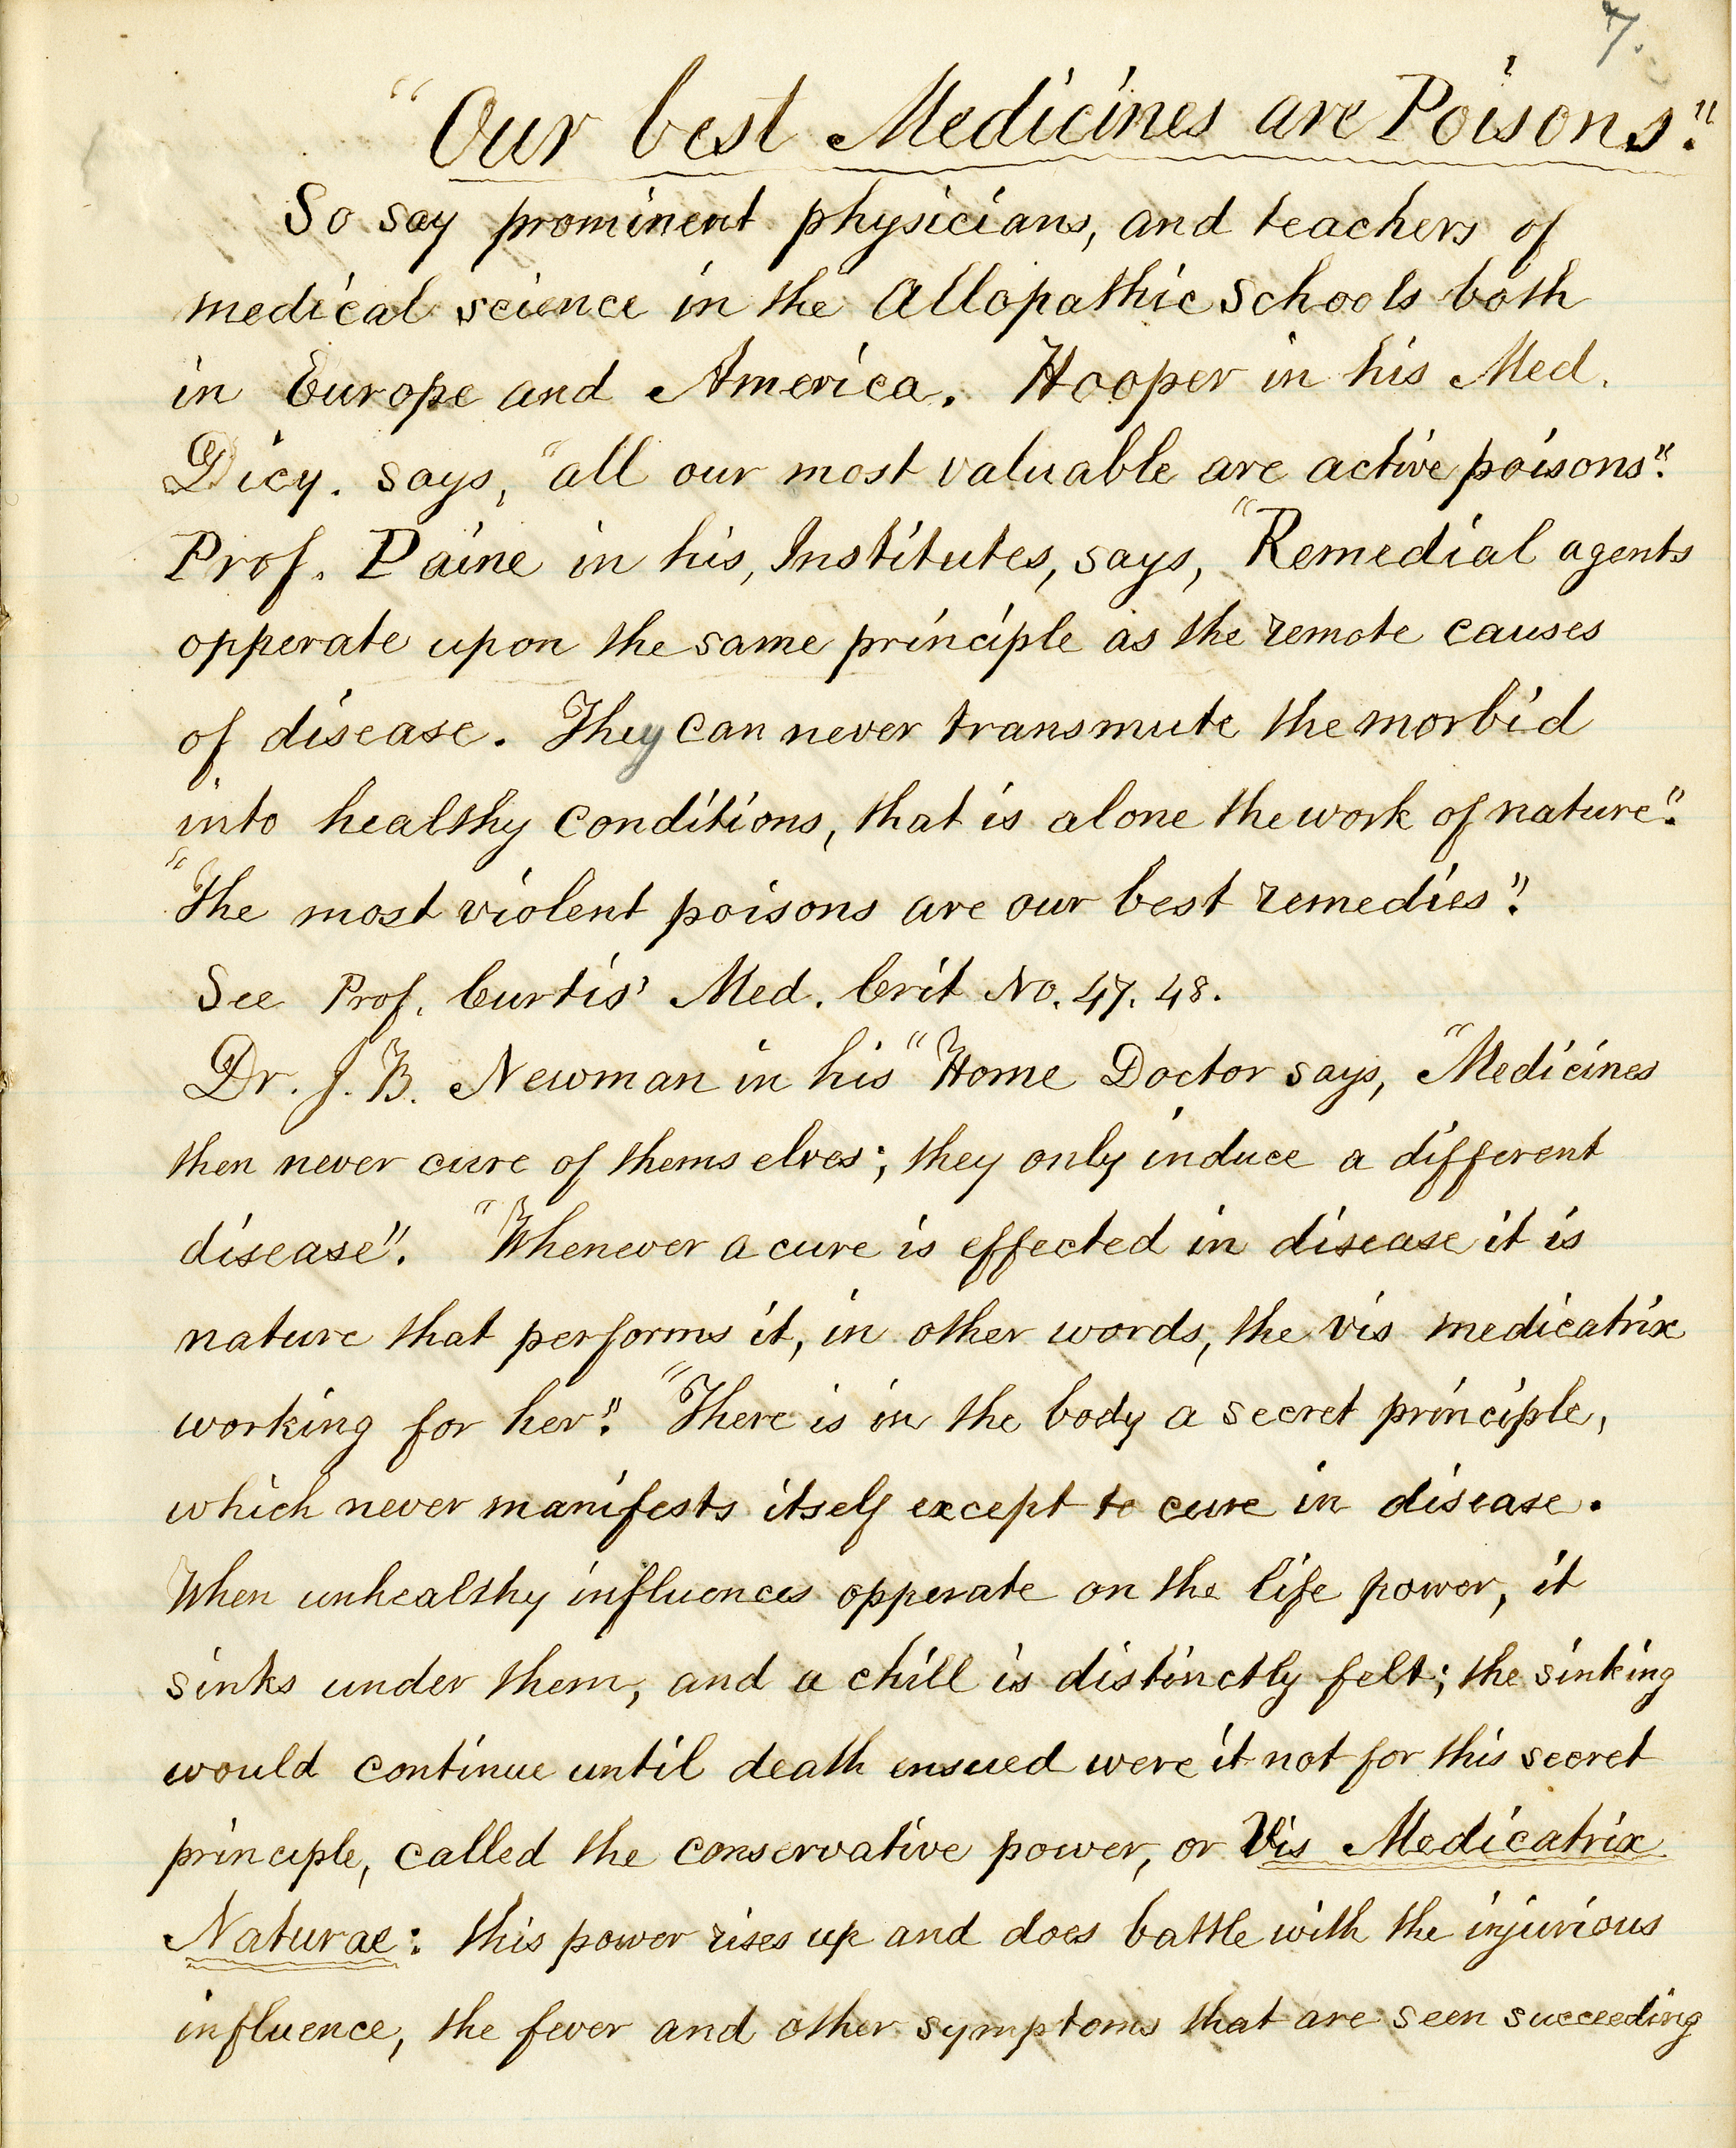 7.
"Our best Medicines are Poisons."
So say prominent physicians, and teachers of
medical science in the Allopathic Schools both
in Europe and America. Hooper in his Med.
Dicy. says, "all our most valuable are active poisons".
Prof. Paine in his, Institutes, says, "Remedial agents
opperate upon the same principle as the remote causes
of disease. They can never transmute the morbid
into healthy conditions, that is alone the work of nature".
"The most violent poisons are our best remedies".
See Prof. Curtis' Med. Crit No. 47. 48.
Dr. J. B. Newman in his "Home Doctor says, "Medicines
then never cure of themselves; they only induce a different
disease". "Whenever a cure is effected in disease it is
nature that performs it, in other words, the vis medicatrix
working for her". "There is in the body a secret principle,
which never manifests itself except to cure in disease.
When unhealthy influences opperate on the life power, it
sinks under them, and a chill is distinctly felt; the sinking
would continue until death ensued were it not for this secret
principle, called the conservative power, or Vis Medicatrix
Naturae: this power rises up and does battle with the injurious
influence, the fever and other symptoms that are seen succeeding